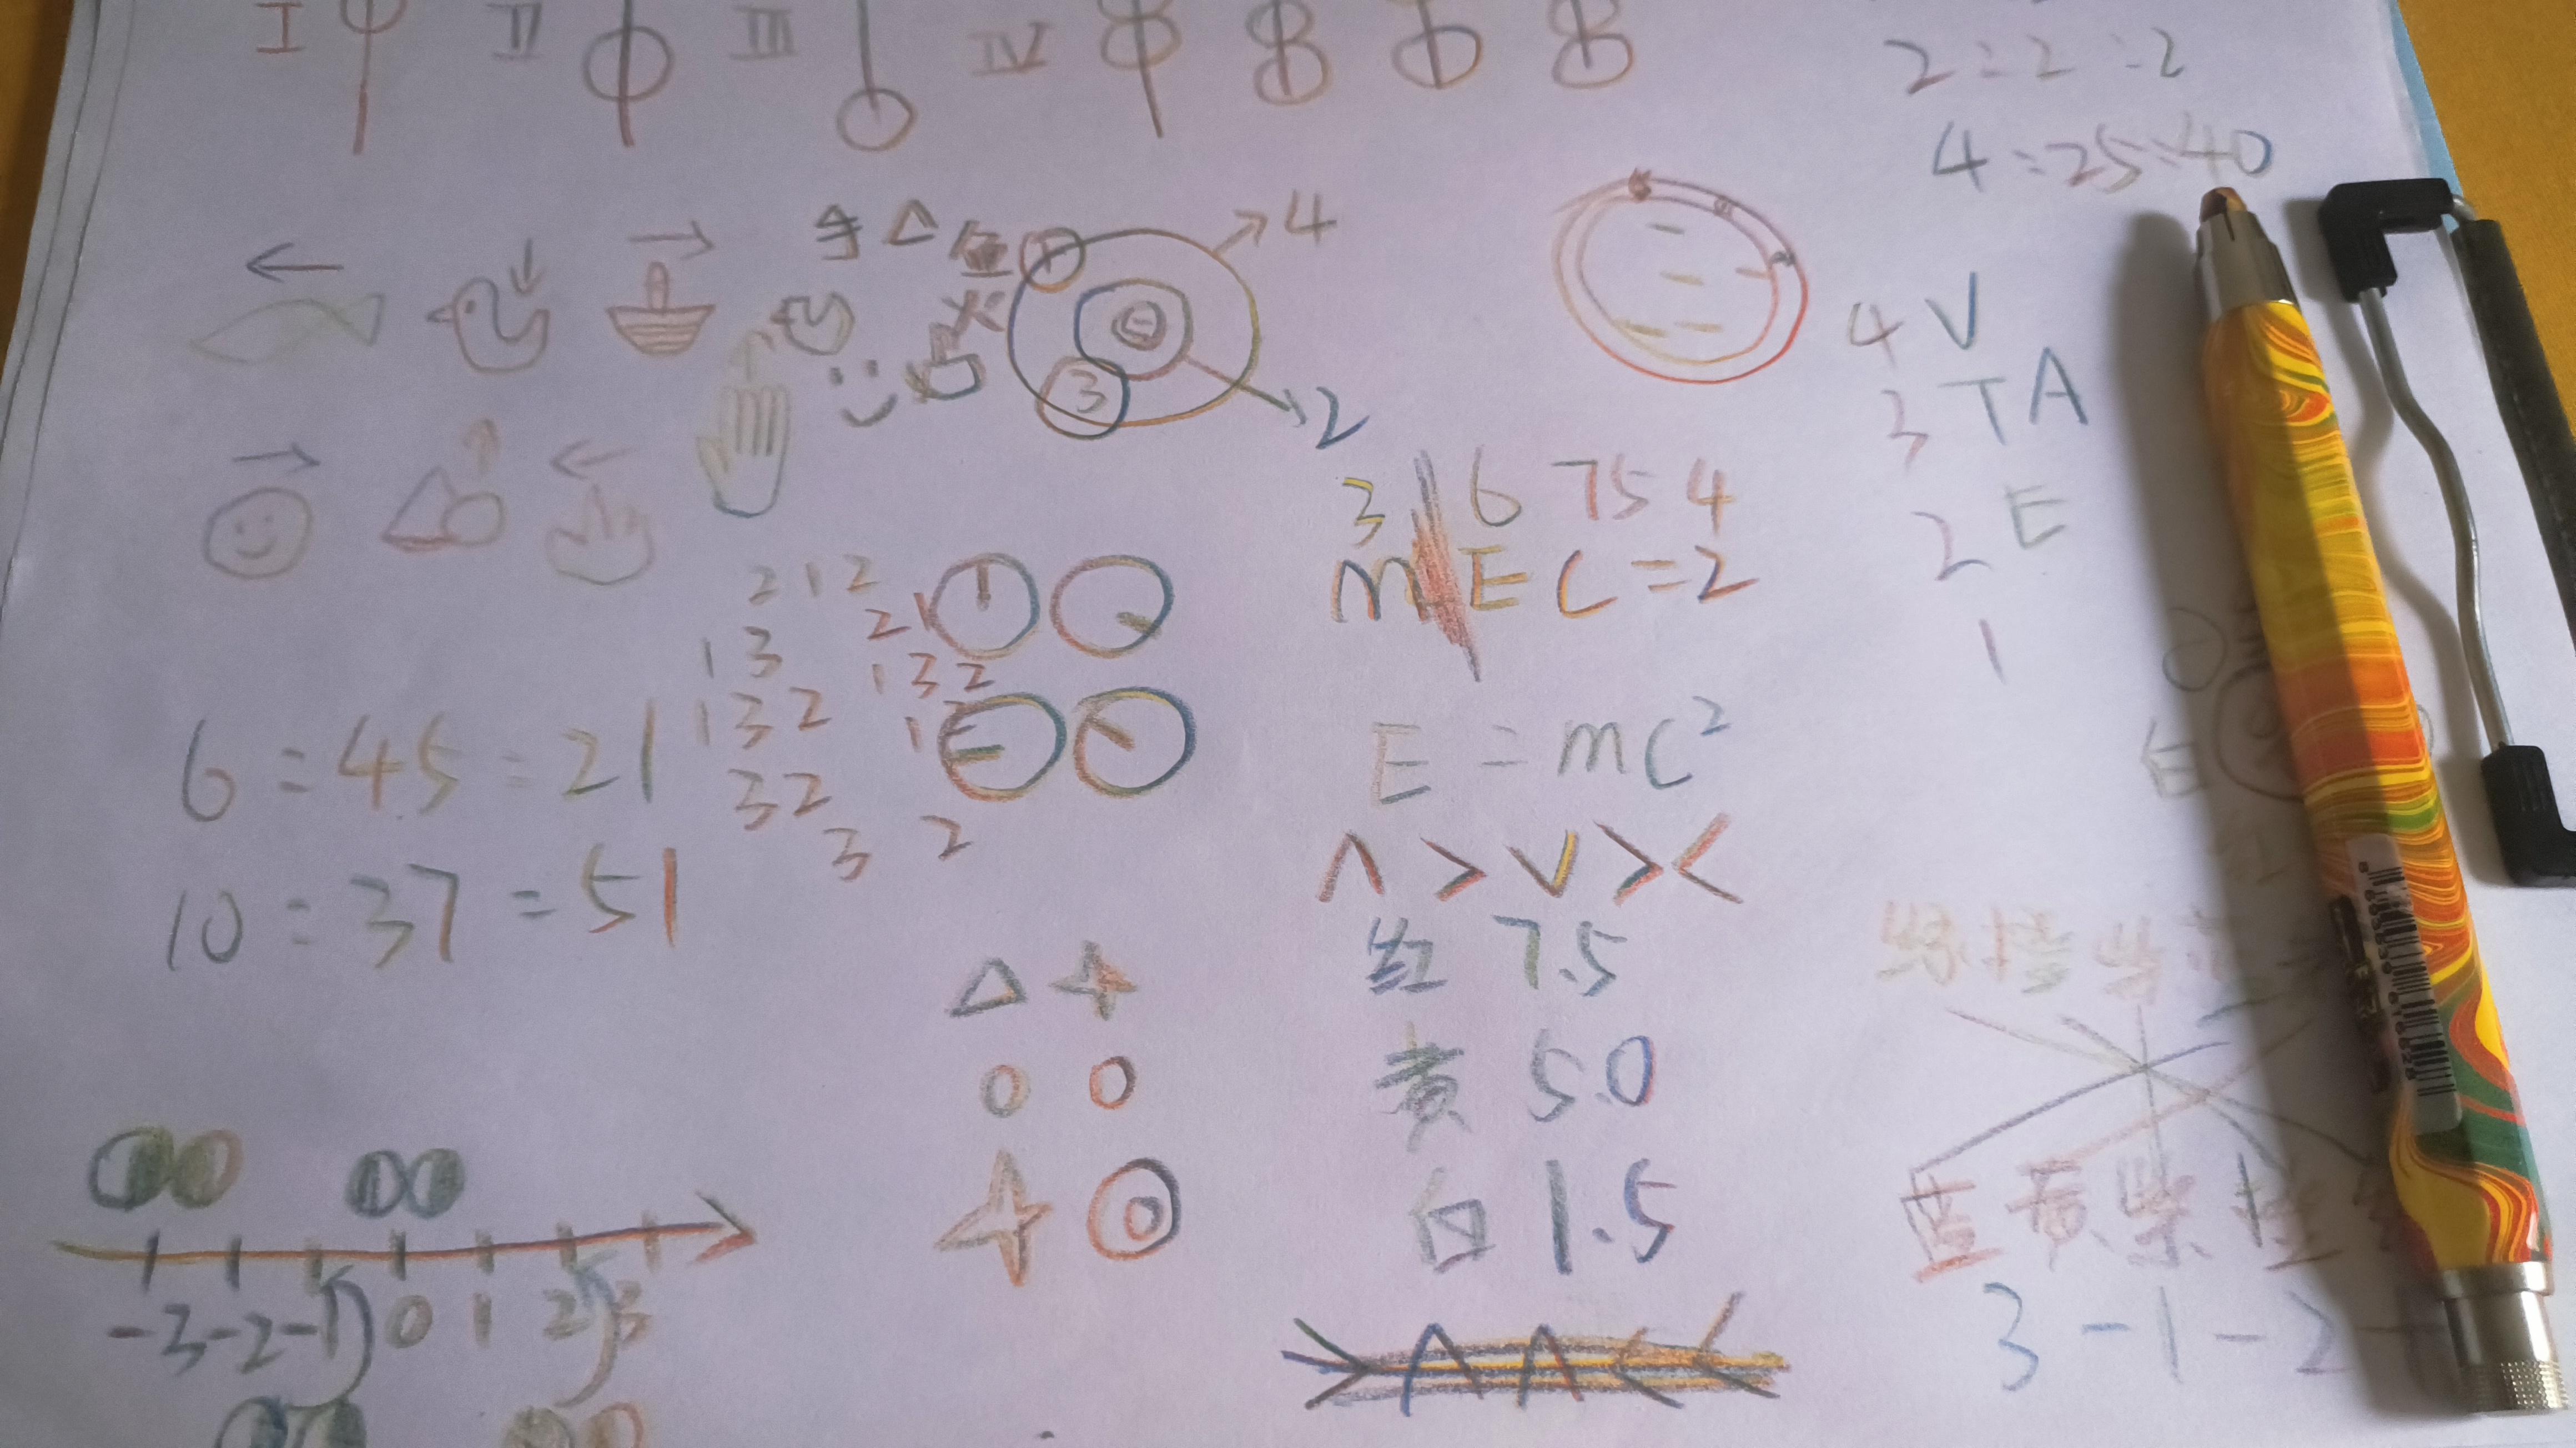 I II III IV
2 : 2 : 2
4 : 25 : 40
手 △ 鱼
火
1
4
3
2
4 V
3 T A
2 E
1
3 6 7 5 4
m E C = 2
2 1 2
21
1 3
1 3 2
1 3 2
3 2
3 2
6 : 45 = 21
10 = 37 = 51
E = mC²
∧ > ∨ > <
红 7.5
黄 5.0
白 1.5
蓝 黄 紫 橙
-3 -2 -1 0 1 2 3
3 - 1 - 2